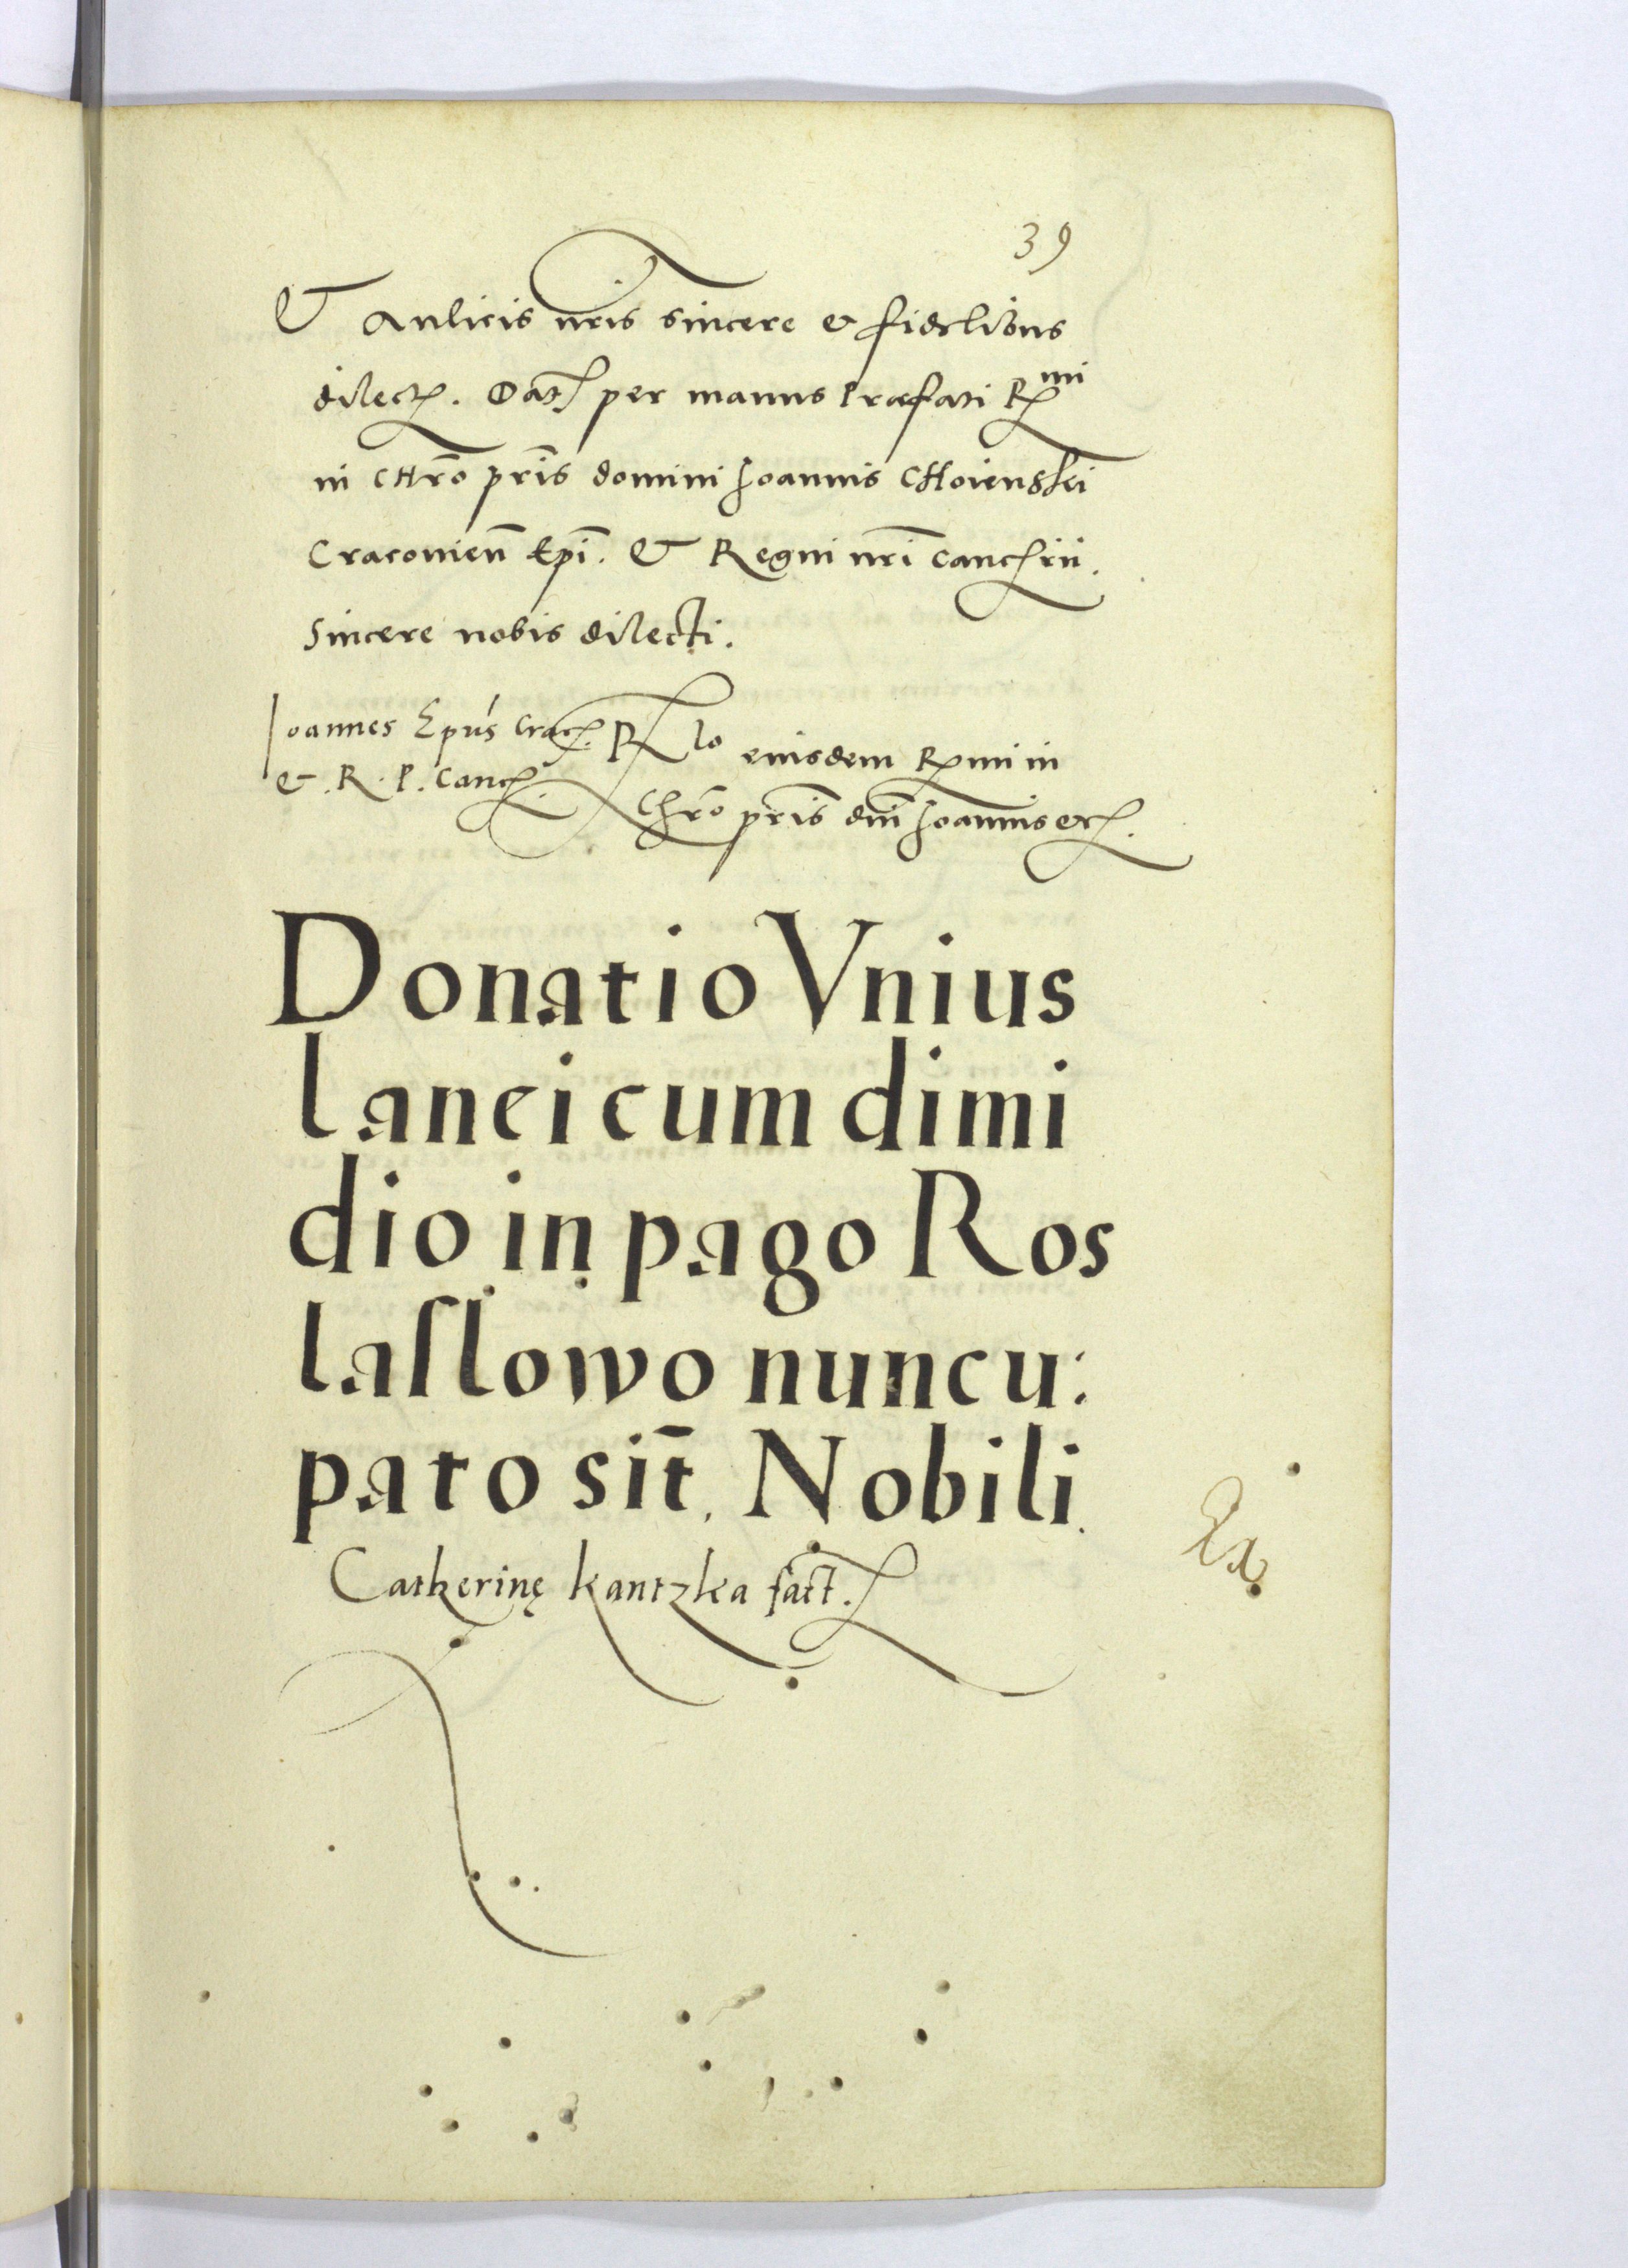 39
& Aulicis nr̄is sincere & fidelibus
dilectꝭ. Datꝭ per manus Præfati Rmi
in CHr̄o pr̄is domini Joannis CHoienskei
Cracovien̄ Ep̄i. & Regni nr̄i Cancꝭrii.
Sincere nobis dilecti.
Joannes Ep̄us Cracꝭ.
&. R. P. Cancꝭ.
Rlo eiusdem Rmi in
Chr̄o pr̄is dn̄i Joannis etcꝭ.
Donatio Vnius
lanei cum dimi
dio in pago Ros
laſlowo nuncu:
pato sit̄. Nobili.
Catherinę Kantzka fact.